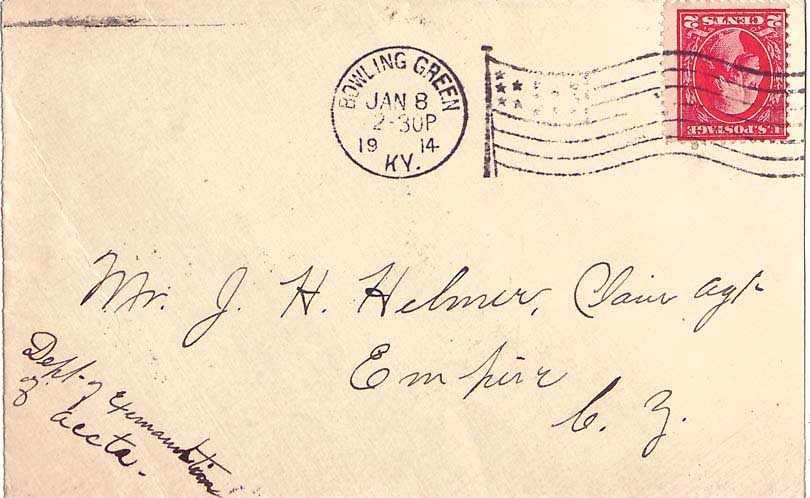 BOWLING GREEN
JAN 8
2-30P
19 14
KY.
2 CENTS 2
U.S. POSTAGE
Mr. J. H. Helmer, Claim Agt
Empire
C. Z.
Dept. of
of
accta.